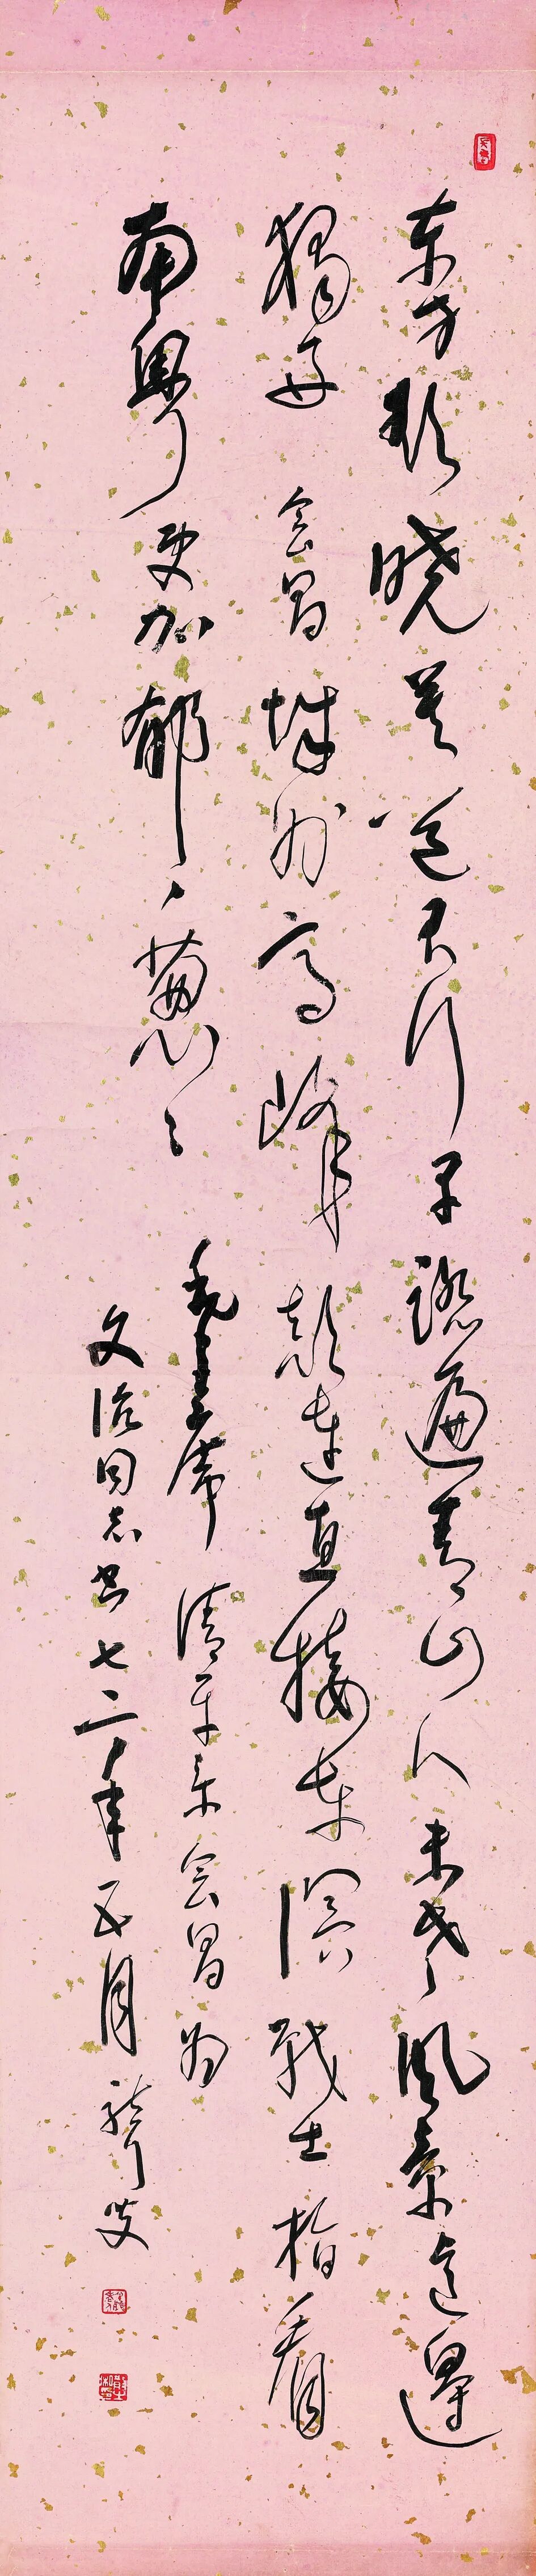 东方欲晓莫道君行早踏遍青山人未老風景這邊
獨好会昌城外高峰颠連直接东溟戰士指看
南粤更加郁々葱々
毛主席清平乐会昌为
文治同志书七二年五月聋叟